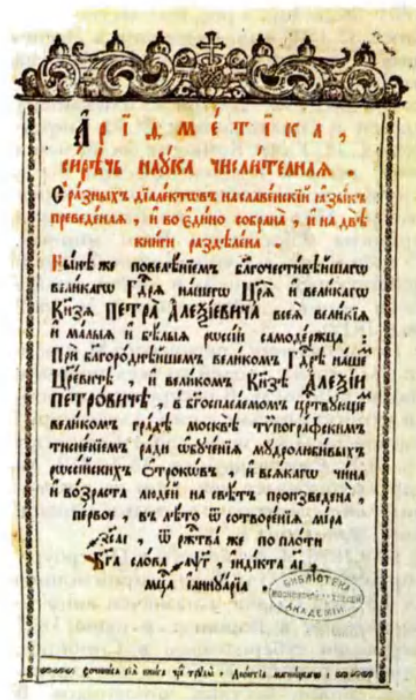 А҆рїѳме́тїка,
сирѣ́чь наꙋ́ка числи́телнаѧ.
С ра́зныхъ дїале́ктѡвъ на славе́нскїй ꙗ҆зы́къ
преведе́наѧ, и҆ во є҆ди́но собрана̀, и҆ на двѣ̀
кни̑ги раздѣле́на.
Нн҃ѣ же повелѣ́нїемъ бл҃гочести́вѣйшагѡ
вели́кагѡ Гдⷭ҇рѧ на́шегѡ Цр҃ѧ̀ и҆ вели́кагѡ
Кнѕ҃ѧ ПЕТРА̀ АЛЕѮІ́ЕВИЧА всеѧ̀ вели́кїѧ
и҆ ма́лыѧ и҆ бѣ́лыѧ рѡссі́и самоде́ржца:
Прѝ бл҃горо́днѣйшемъ вели́комъ Гдⷭ҇рѣ на́шеⷨ
Цр҃е́вичѣ, и҆ вели́комъ Кнѕ҃ѣ АЛЕѮІ́И
ПЕТРО́ВИЧѢ, в бг҃оспаса́емомъ црⷭ҇твꙋющеⷨ
вели́комъ гра́дѣ москвѣ̀ тѷпогра́фскимъ
тисне́нїемъ ра́ди ѡ҆бꙋче́нїѧ мꙋдролюби́выхъ
рѡссі́йскихъ ѻ҆́трокѡвъ, и҆ всѧ́кагѡ чи́на
и҆ во́зраста люде́й на свѣ́тъ произведена̀,
пе́рвое, въ лѣ́то ѿ сотворе́нїѧ мі́ра
҂зс҃аі, ѿ ржⷭ҇тва́ же по пло́ти
Бг҃а сло́ва ҂аѱ҃г, і҆нді́кта а҃і,
мцⷭ҇а і҆аннꙋа́рїа.
БИБЛІОТЕКА
АКАДЕМІИ
Сочини́сѧ сїѧ̀ кни́га чреⷥ трꙋды̀ Леѡ́нтїа магни́цкагѡ: